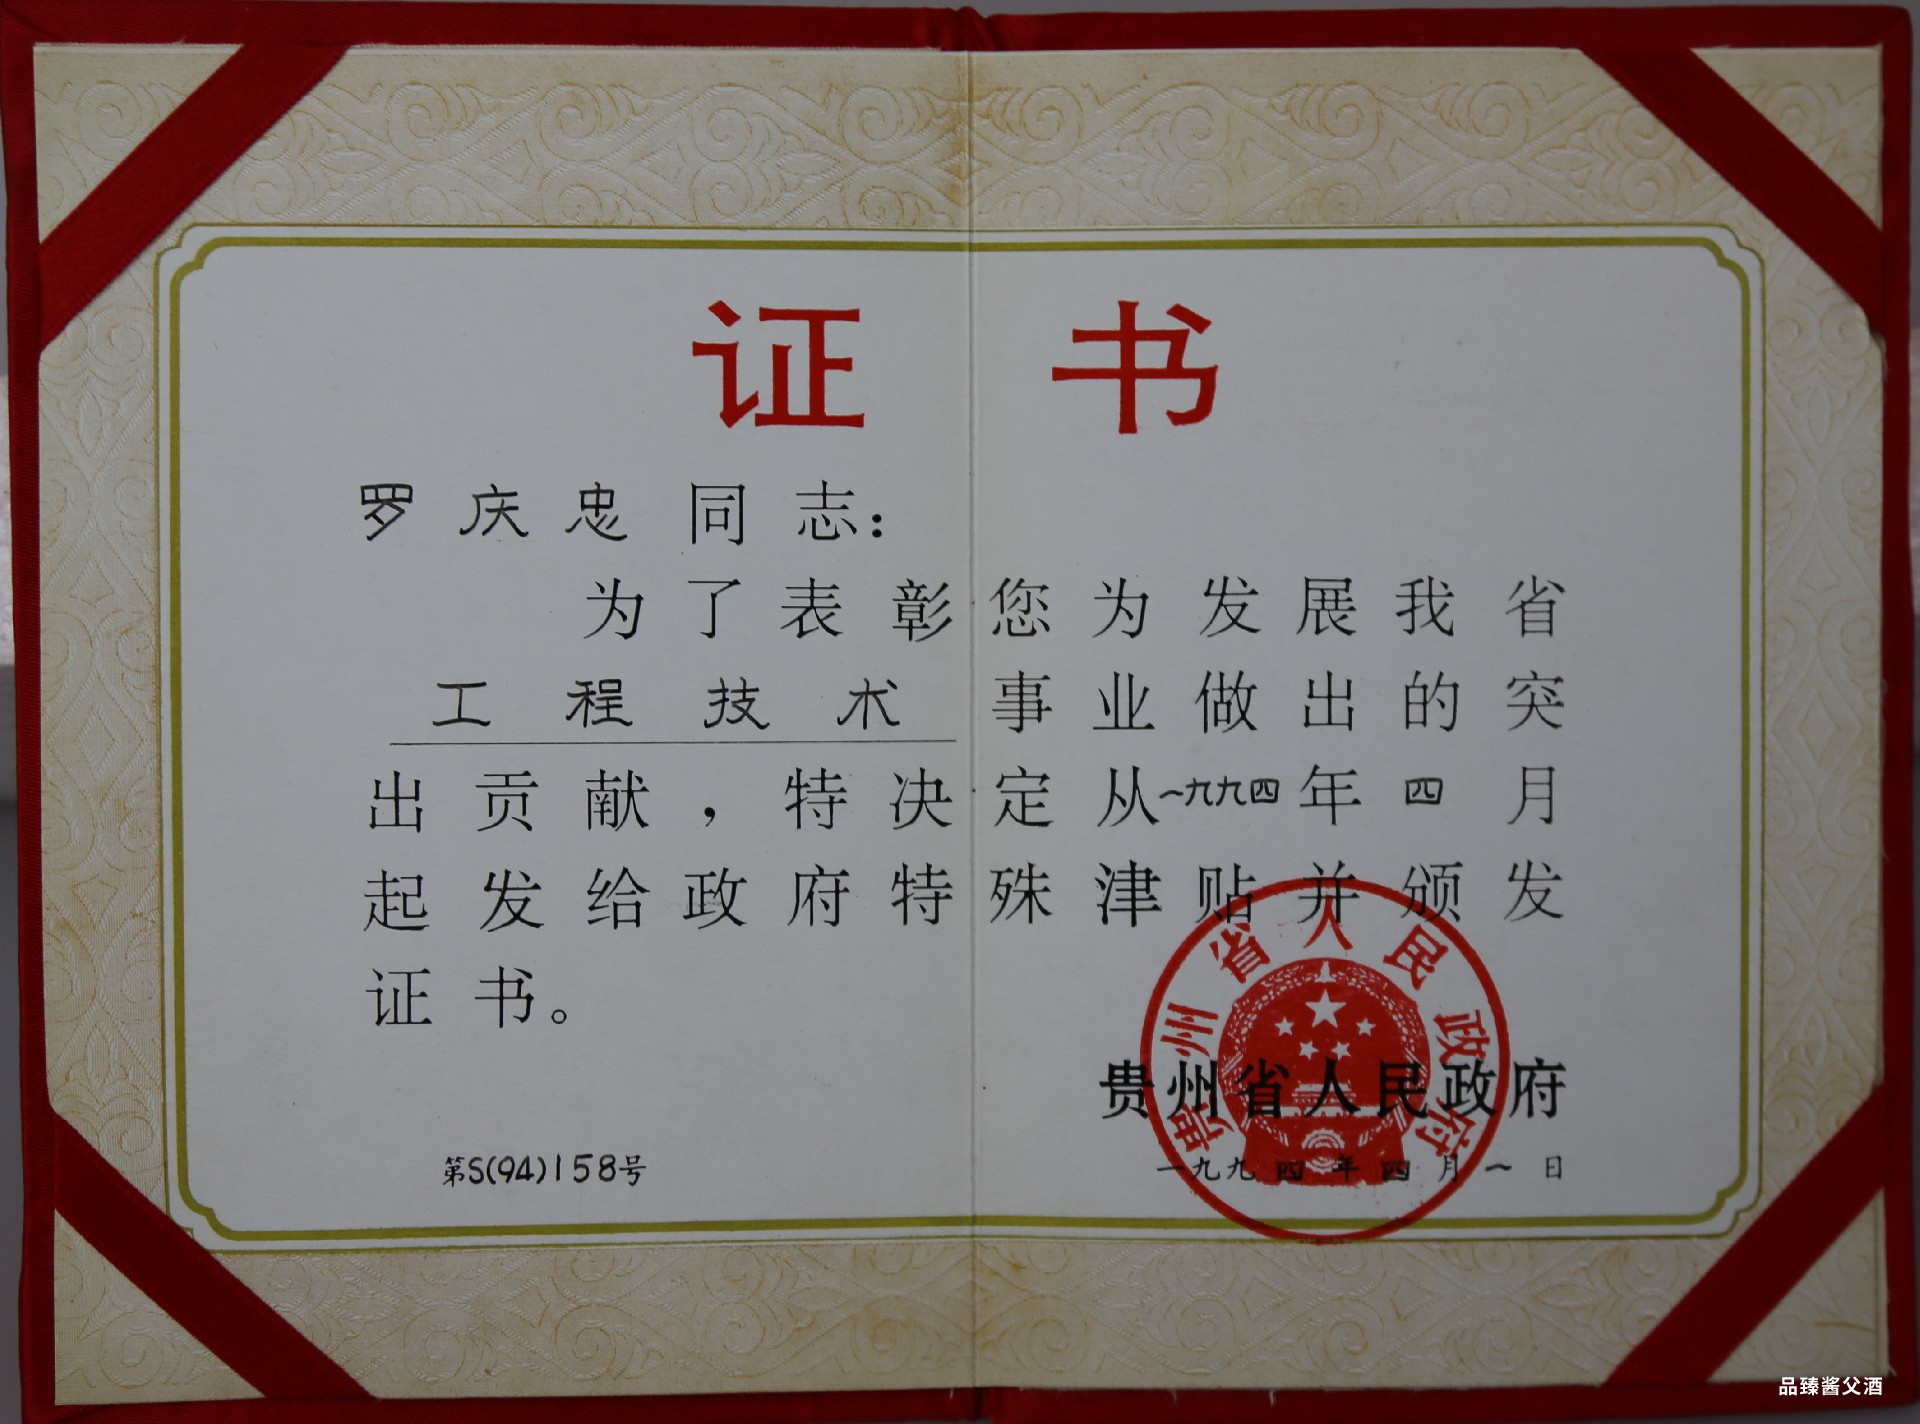 证书
罗庆忠同志：
为了表彰您为发展我省
工程技术事业做出的突
出贡献，特决定从一九九四年四月
起发给政府特殊津贴并颁发
证书。
贵州省人民政府
贵州省人民政府
第S(94)158号
一九九四年四月一日
品臻酱父酒